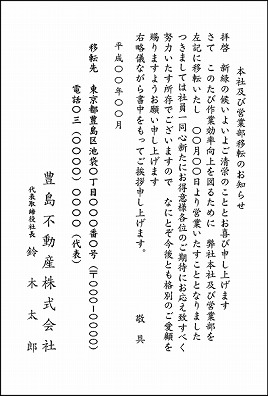 本社及び営業部移転のお知らせ
拝啓　新緑の候いよいよご清栄のこととお喜び申し上げます
さて　このたび作業効率向上を図るために　弊社本社及び営業部を
左記に移転いたし　〇〇月〇〇日より営業いたすこととなりました
つきましては社員一同心新たにお得意様各位のご期待にお応え致すべく
努力いたす所存でございますので　なにとぞ今後とも格別のご愛顧を
賜りますようお願い申し上げます
右略儀ながら書中をもってご挨拶申し上げます。
敬具
平成〇〇年〇〇月
移転先　東京都豊島区池袋〇丁目〇〇〇番〇号（〒〇〇〇−〇〇〇〇）
電話〇三（〇〇〇〇）〇〇〇〇（代表）
豊島不動産株式会社
代表取締役社長　鈴木太郎